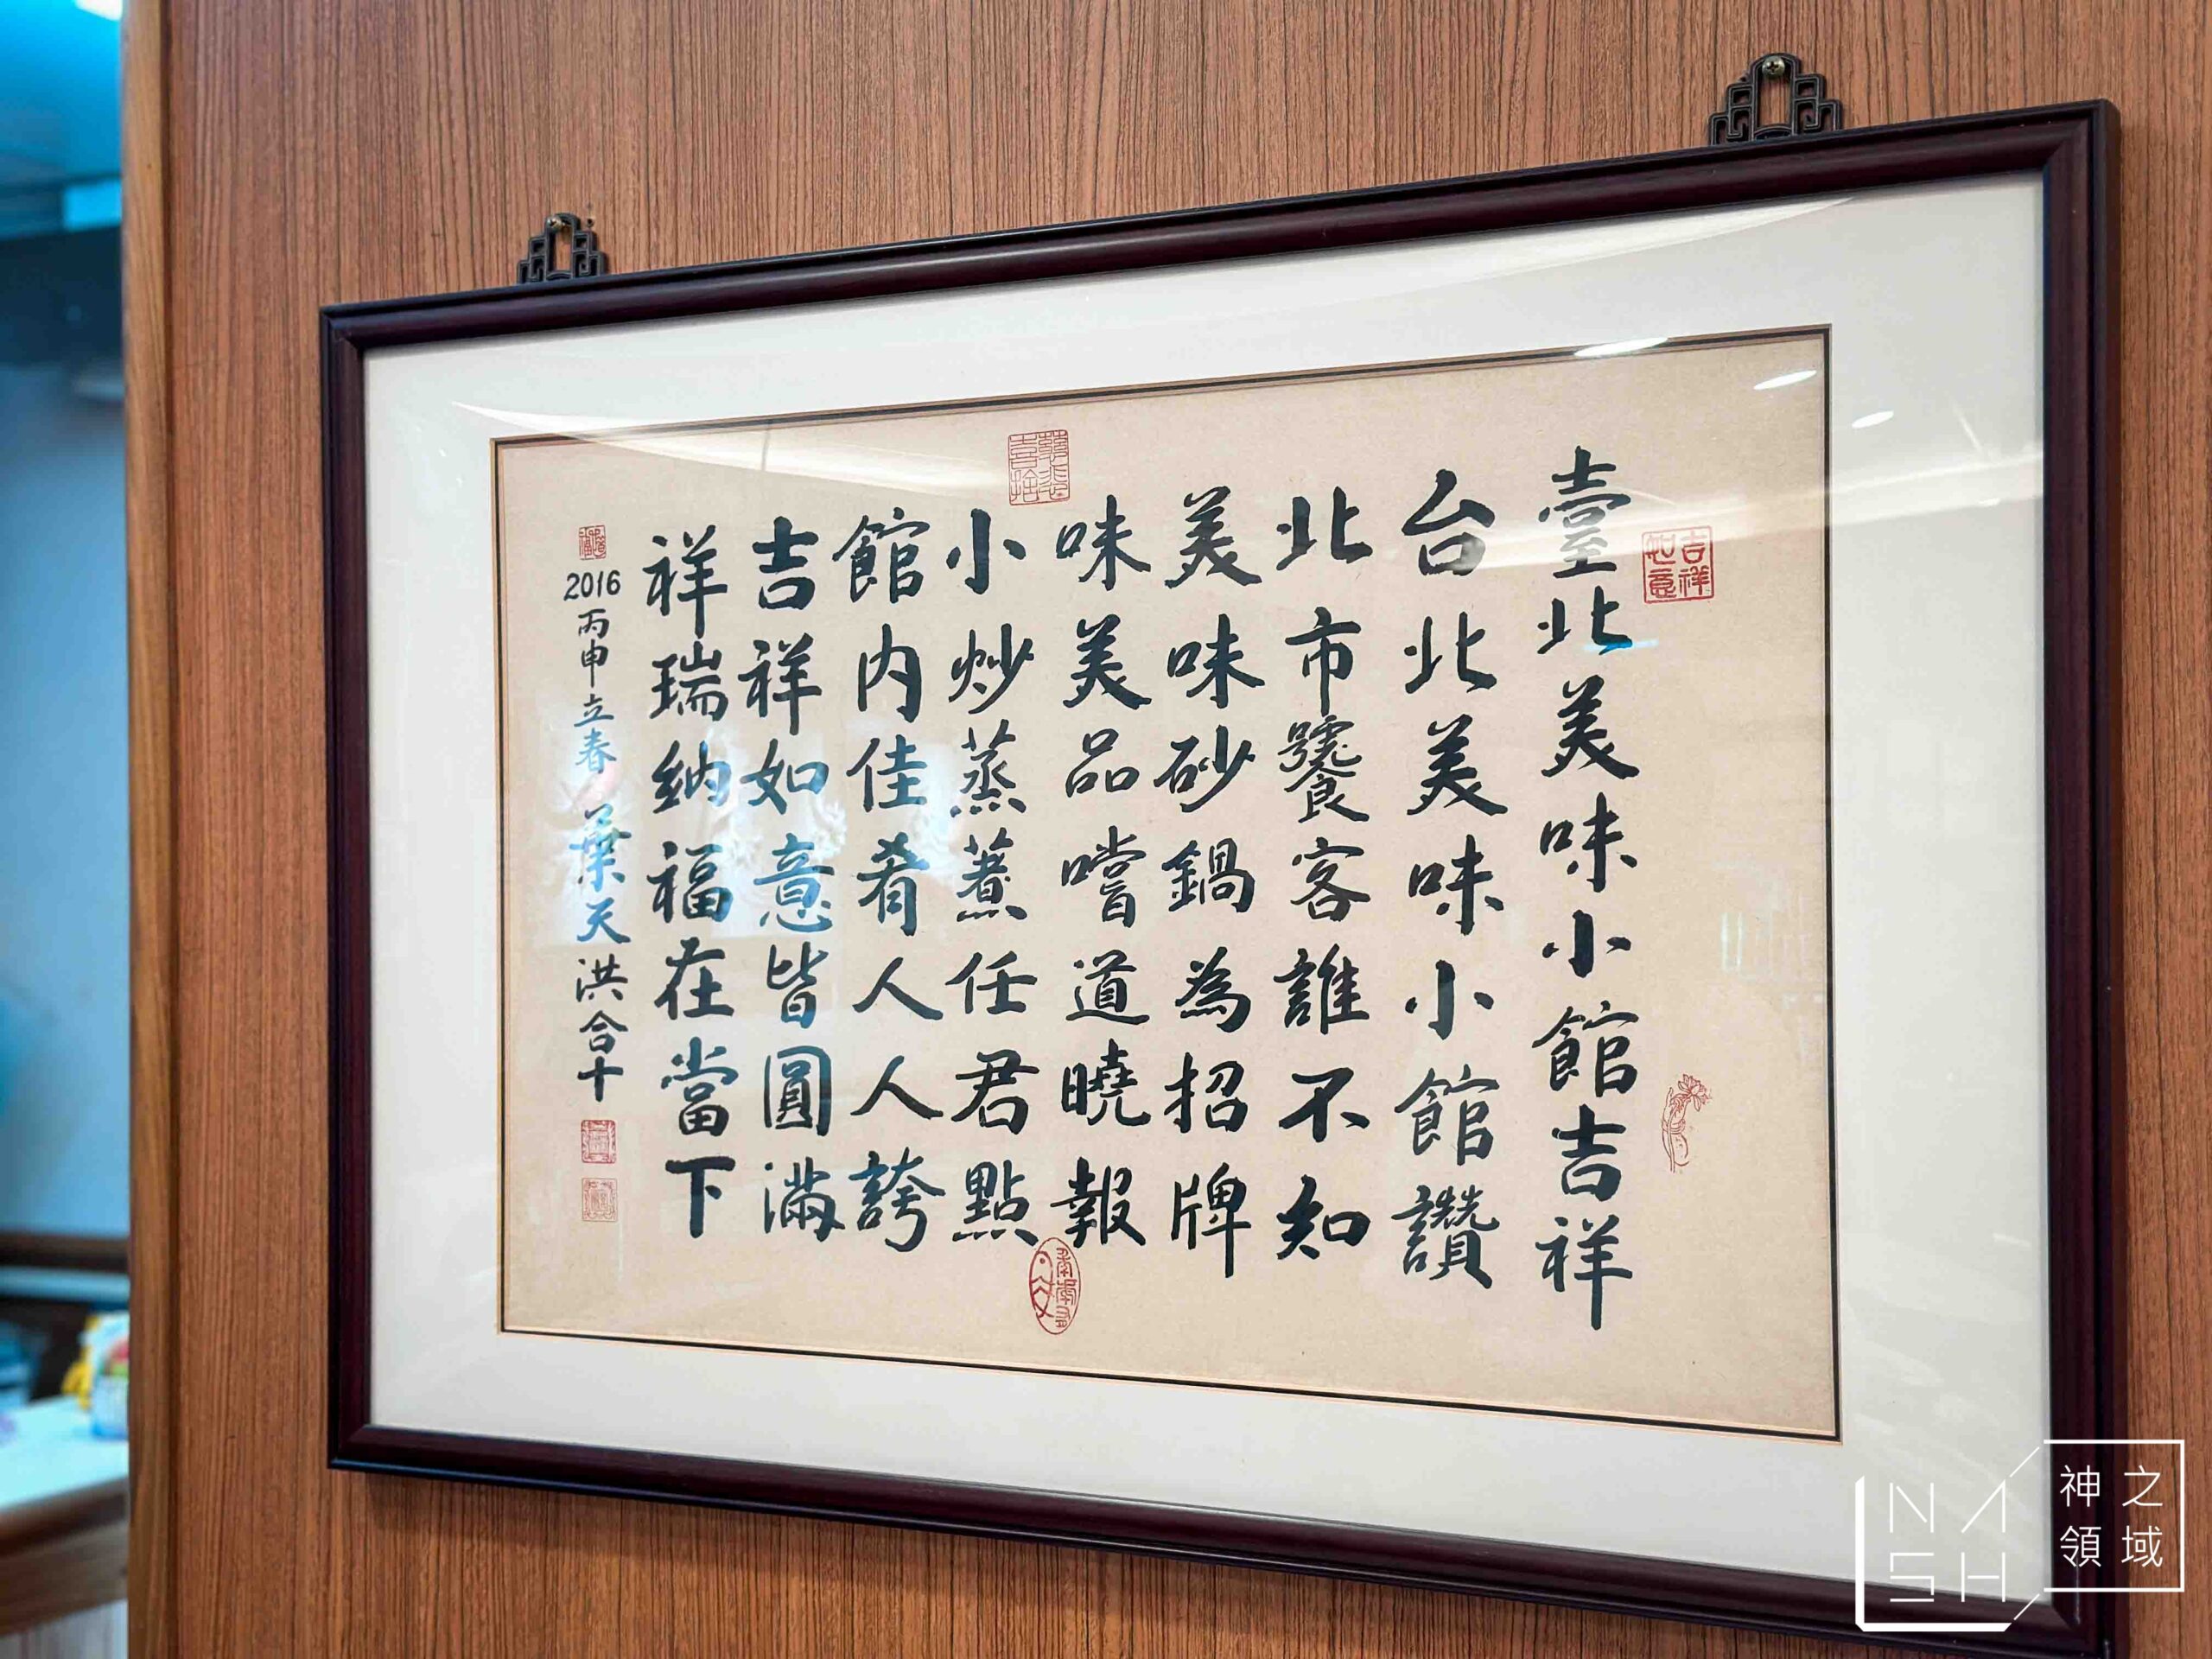 臺北美味小館吉祥
台北美味小館讚
北市饕客誰不知
美味砂鍋為招牌
味美品嚐道曉報
小炒蒸煮任君點
館內佳肴人人誇
吉祥如意皆圓滿
祥瑞納福在當下
2016丙申立春 葉天洪合十
吉祥
如意
慈悲
喜捨
NASH
神之
領域